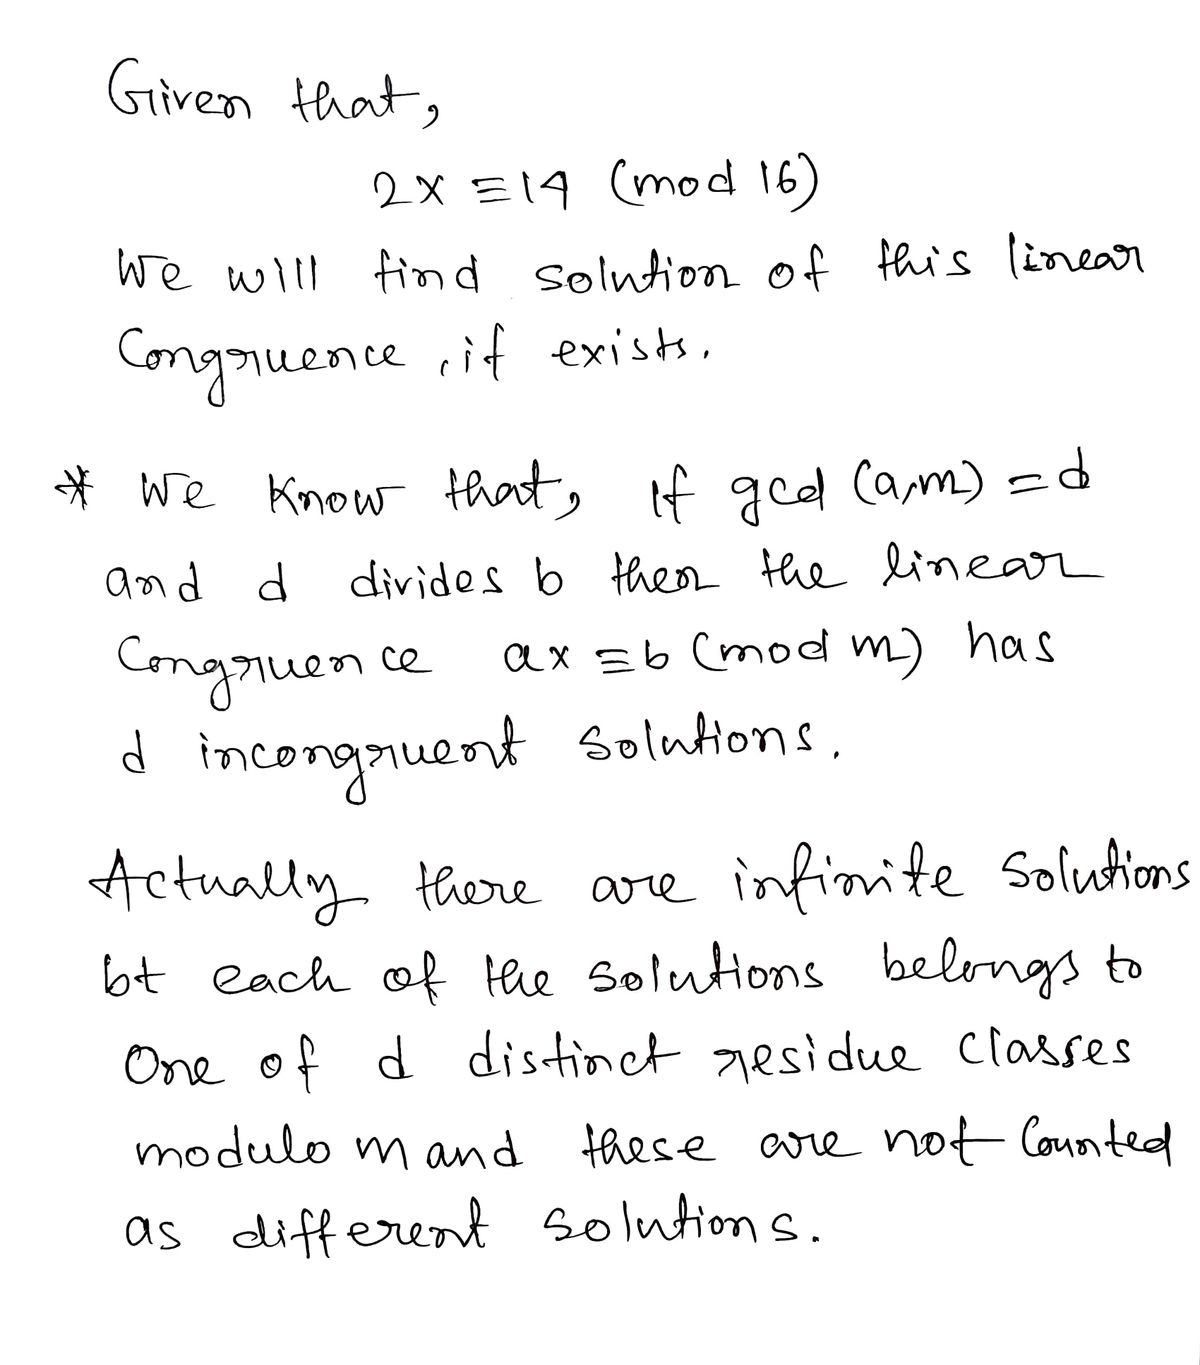 Given that,
2x ≡ 14 (mod 16)
We will find solution of this linear
Congruence, if exists.
* We Know that, if gcd (a,m) = d
and d divides b then the linear
Congruence ax ≡ b (mod m) has
d incongruent solutions.
Actually there are infinite solutions
bt each of the solutions belongs to
One of d distinct residue classes
modulo m and these are not Counted
as different solutions.